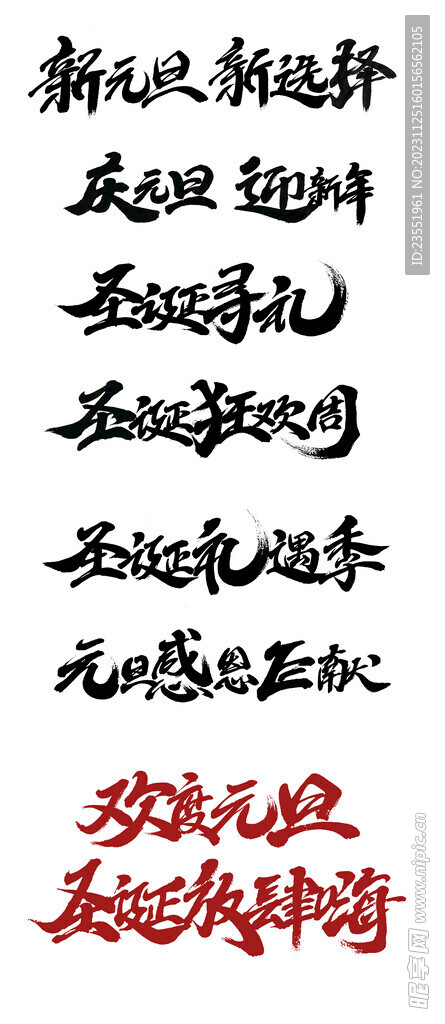 新元旦 新选择
庆元旦 迎新年
圣诞寻礼
圣诞狂欢周
圣诞礼遇季
元旦感恩巨献
欢度元旦
圣诞放肆嗨
ID:23551961 NO:20231125160156562105
昵享网 www.nipic.cn